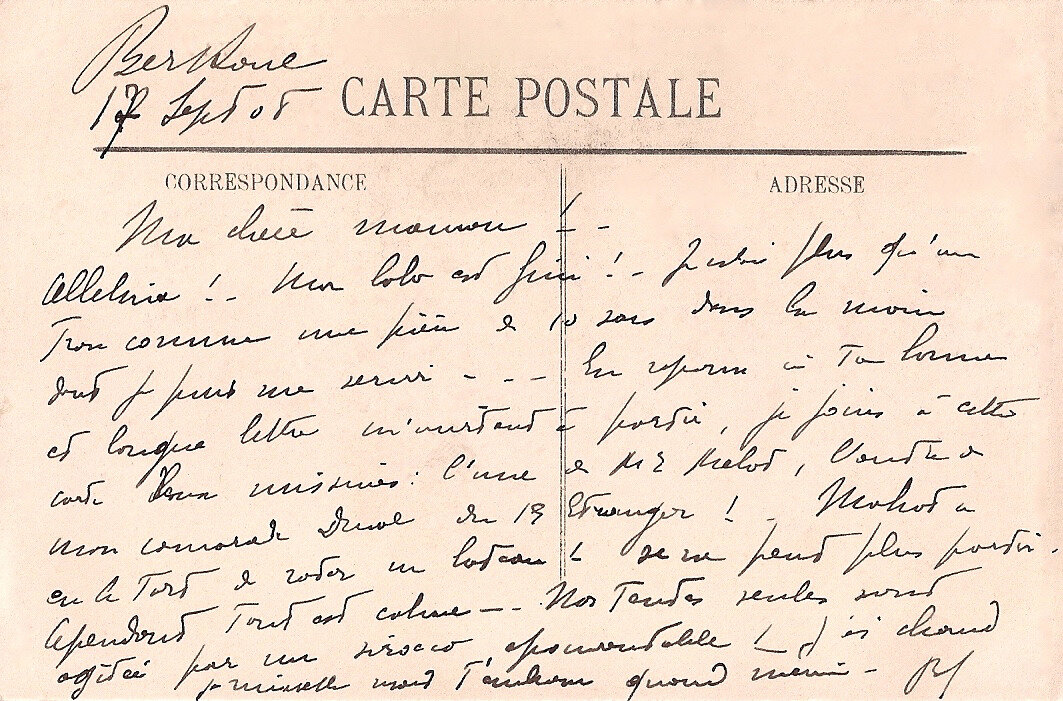 17 Sept 05
CARTE POSTALE
CORRESPONDANCE
ADRESSE
Ma chère maman !
Alleluia ! Mon lolo est fini ! J'avais plus qu'un
Trou comme une pièce de 10 sous dans la main
dont je puis me servir - - - En réponse à Ta bonne
et longue lettre m'invitant à partir, je joins à cette
carte deux missives : l'une de Mr Melot, l'autre de
mon camarade du 1er Etranger !
eu le Tort de un bateau ! ne peut plus partir.
Cependant Tout est calme -- Nos Tentes seules sont
agitées par un sirocco épouvantable ! J'ai chaud
quand même -